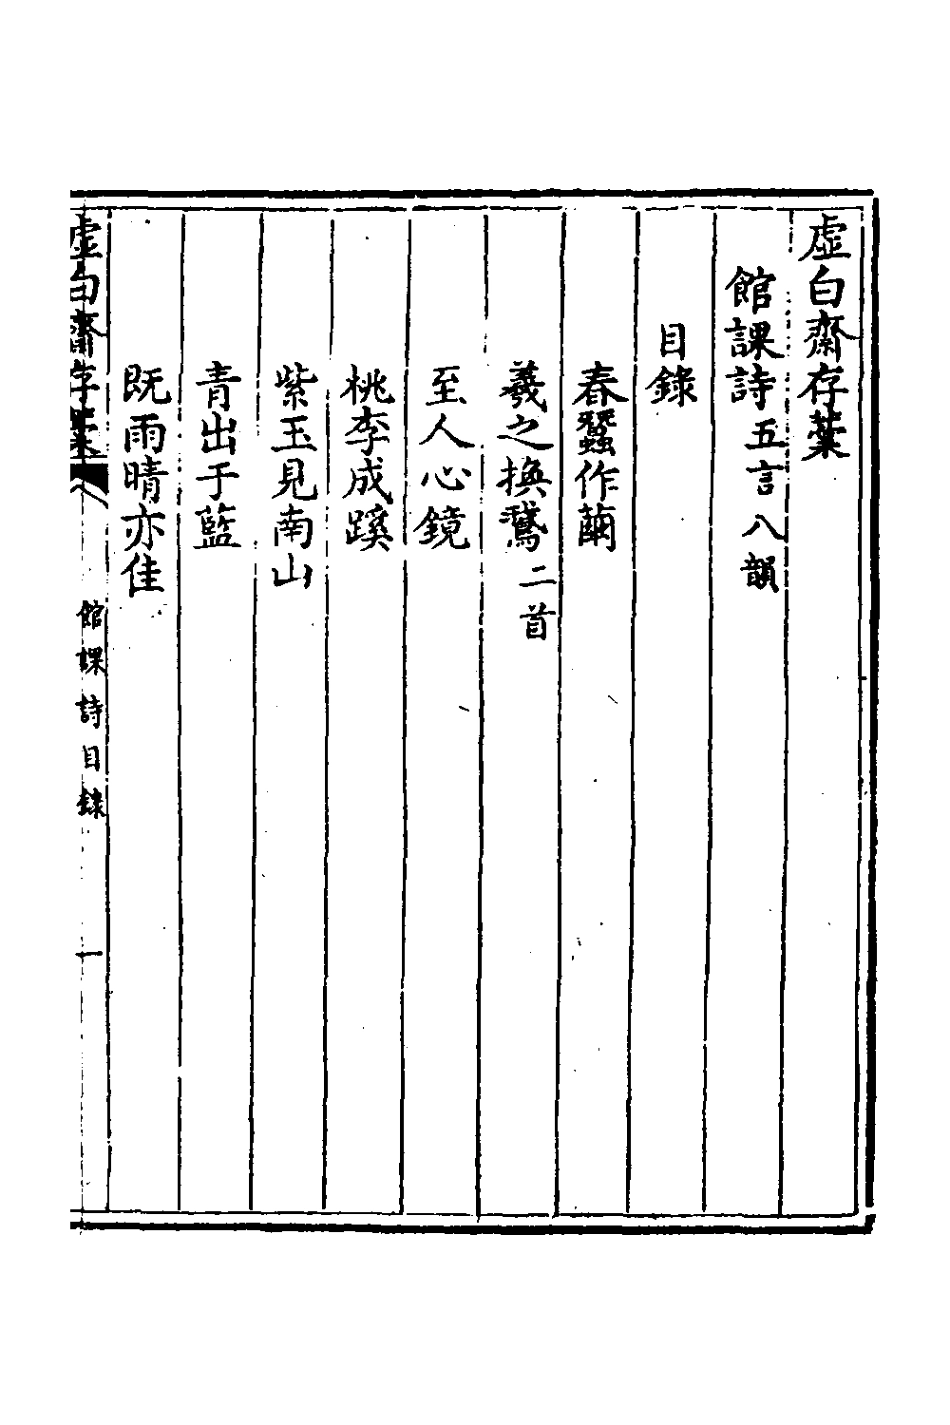 虛白齋存藳
館課詩五言八韻
目錄
春蠶作繭
羲之換鵞二首
至人心鏡
桃李成蹊
紫玉見南山
青出于藍
既雨晴亦佳
虛白齋存藳 館課詩目錄 一